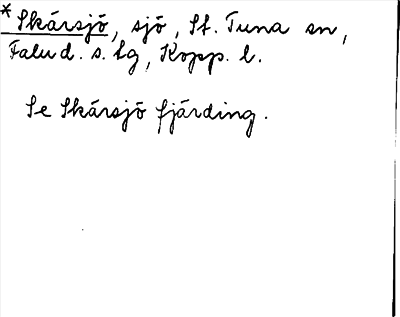 *Skårsjö, sjö, St. Tuna sn,
Falu d. s. lg, Kopp. l.
Se Skårsjö fjärding.